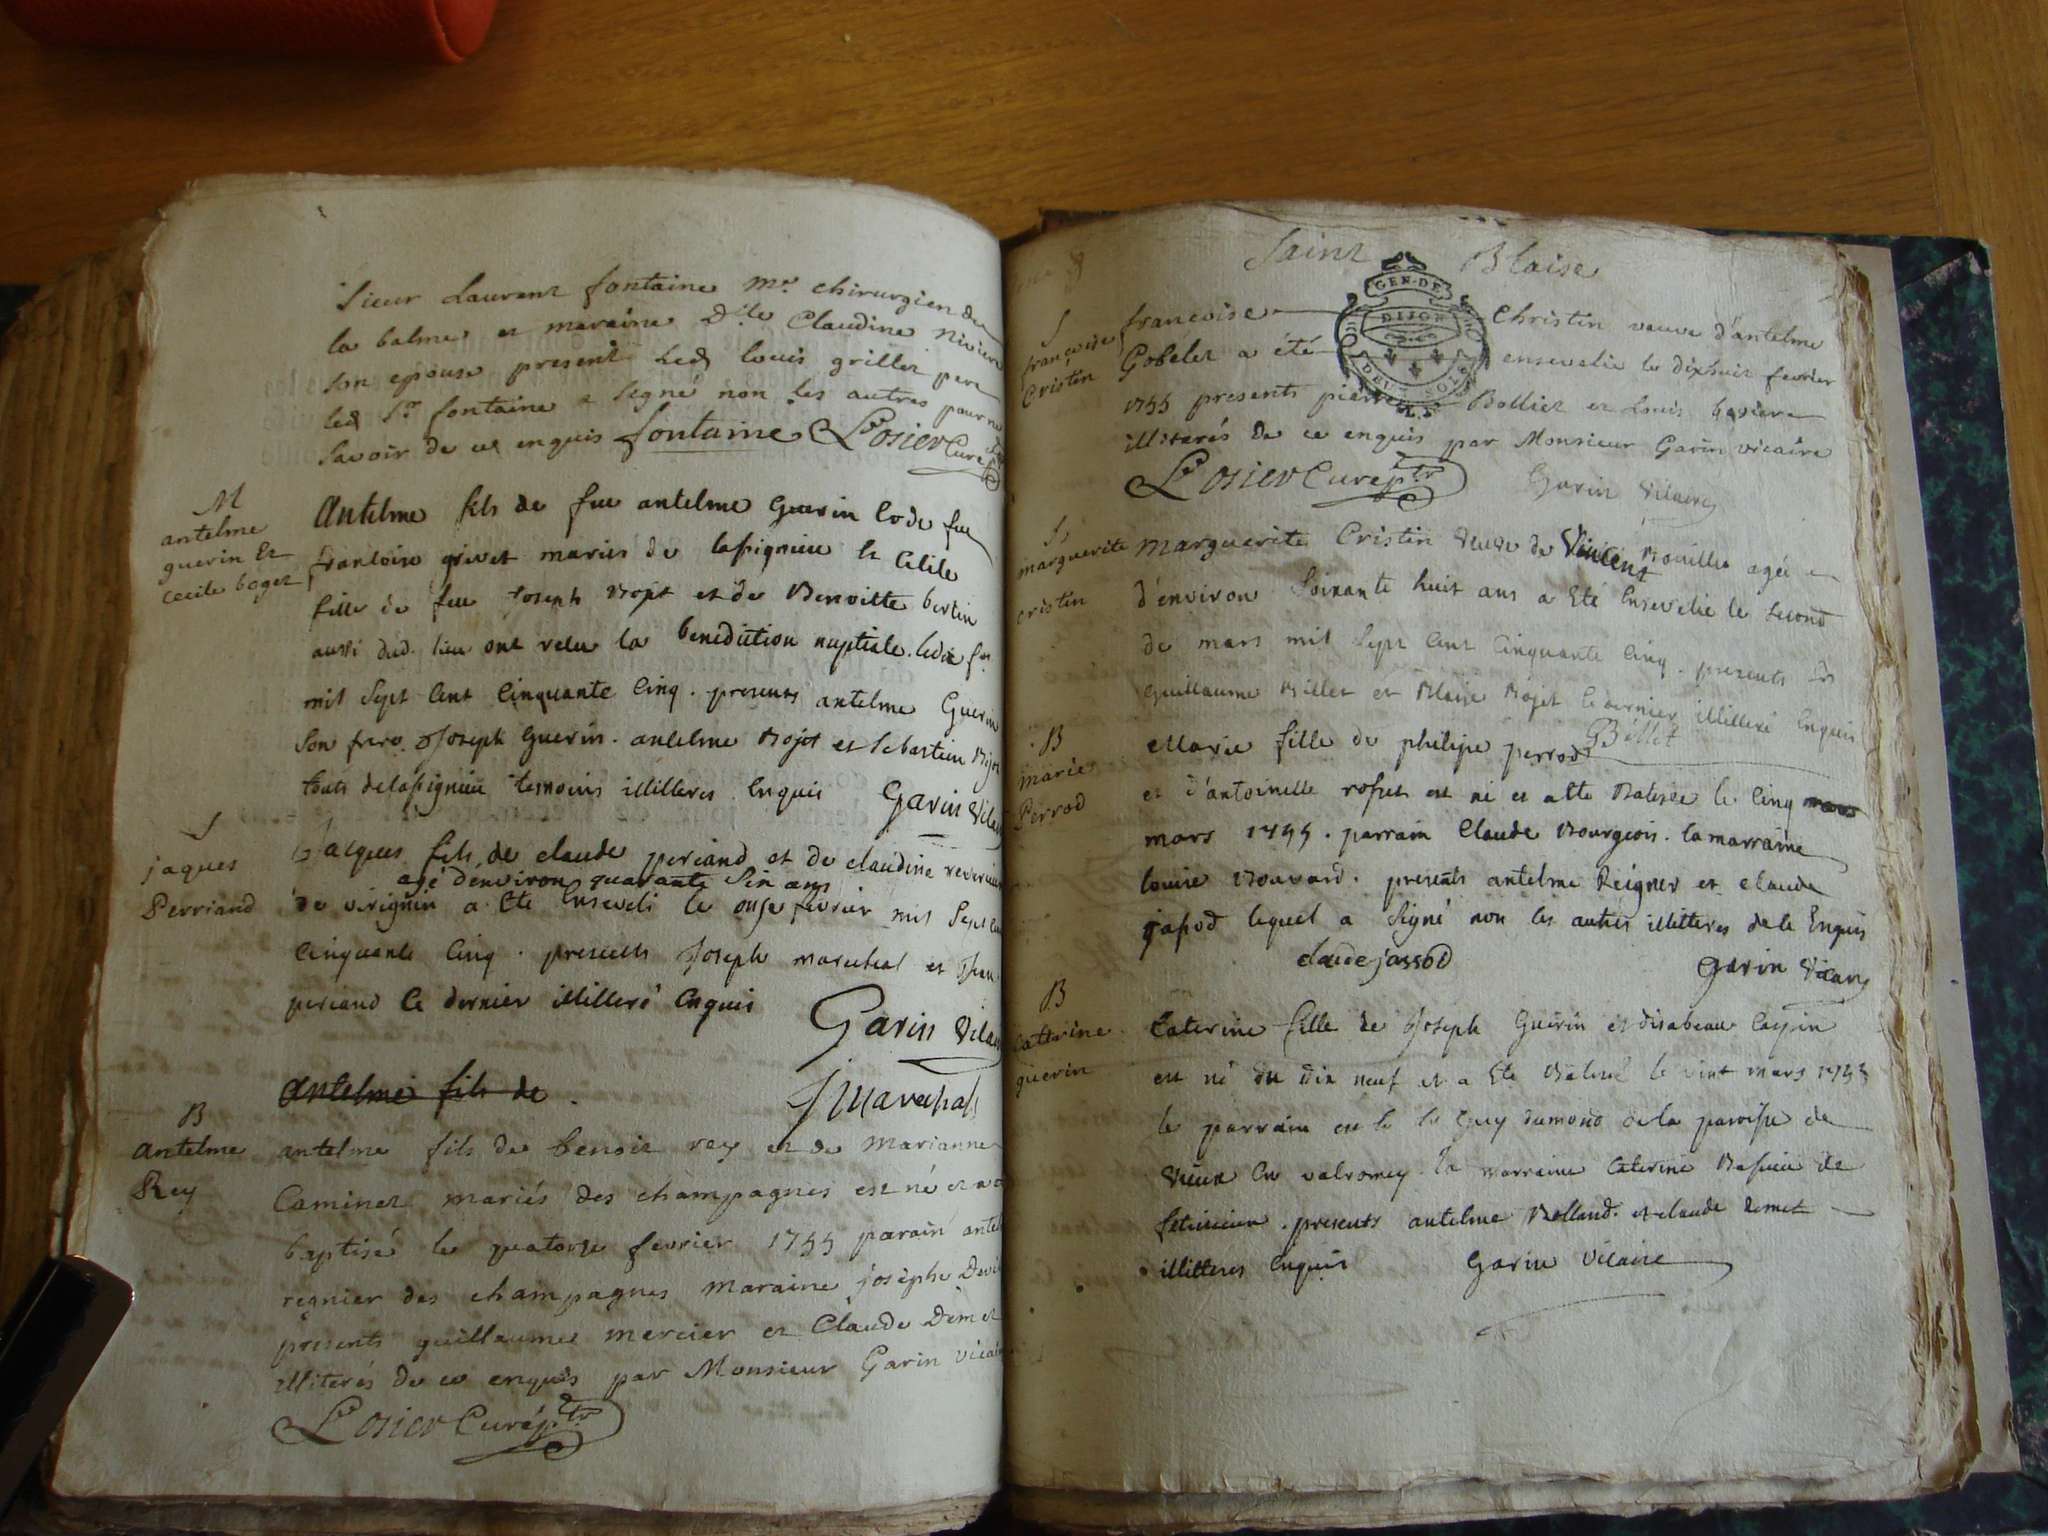 Sieur Laurent fontaine Mr. chirurgien de
la balme et maraine Dlle Claudine Riviere
son epouse present led louis grillet pere
led Sr fontaine a signé non les autres pour ne
savoir de ce enquis fontaine Losier Curé
M
antelme
guerin Et
cecile boget
Antelme fils de feu antelme Guerin Et de feu
francoise grivet mariés de Et Cecile
fille de feu Joseph Bojet et de Benoitte bertin
aussi dud. lieu ont recu la benediction nuptiale
mil Sept Cent Cinquante Cinq . presents antelme Guerin
son frere Joseph Guerin . antelme Bojot et Sebastien
touts temoins illitteres Enquis Garin Vicaire
S
jaques
Perriand
Jacques fils de claude periand et de claudine
agé denviron quarante Six ans
de virignin a Ete Enseveli le onze fevrier mil Sept Cent
Cinquante Cinq . presents Joseph marechal et Jean
periand Ce dernier illitteré Enquis
Garin Vicaire
Antelme fils de
J Marechal
B
antelme
Rey
antelme fils de benoit rey et de Marianne
Caminet mariés des champagnes est né et a eté
baptisé le quatorze fevrier 1755 parain antelme
regnier des champagnes Maraine josephe
presents guillaume mercier et Claude Demet
illiterés de ce enquis par Monsieur Garin vicaire
Losier Curé ptr
Saint Blaise
GEN·DE
DIJON
DEUX SOLS
S
françoise
Cristin
francoise Christin veuve d'antelme
Gobelet a été ensevelie le dixhuit fevrier
1755 presents pierre Bolliet et Louis
illiterés de ce enquis par Monsieur Garin vicaire
Losier Curé ptr Garin Vicaire
S
marguerite
cristin
Marguerite Cristin veuve de Vincent agée
d'environ Soixante huit ans a Eté Ensevelie le second
de mars mil Sept Cent Cinquante Cinq . presents
Guillaume Billet et Blaise Bojet Ce dernier illitteré Enquis
GBillet
B
marie
Perrod
Marie fille de philipe perrod
et d'antoinette rosset est né et a ete Batisée le Cinq
mars 1755 . parrain Claude Bourgeois . la marraine
louise Bouvard . presents antelme Reignier et claude
jassod lequel a Signé non les autres illitteres de ce Enquis
claude jassod Garin Vicaire
B
Caterine
guerin
Caterine fille de Joseph Guerin et disabeau
est né du dix neuf et a Ete Batisé le vint mars 1755
le parrain Guy dumond de la paroisse de
Vieux En valromey la marraine Caterine de
presents antelme Rolland . et claude Demet
illitteres Enquis Garin Vicaire